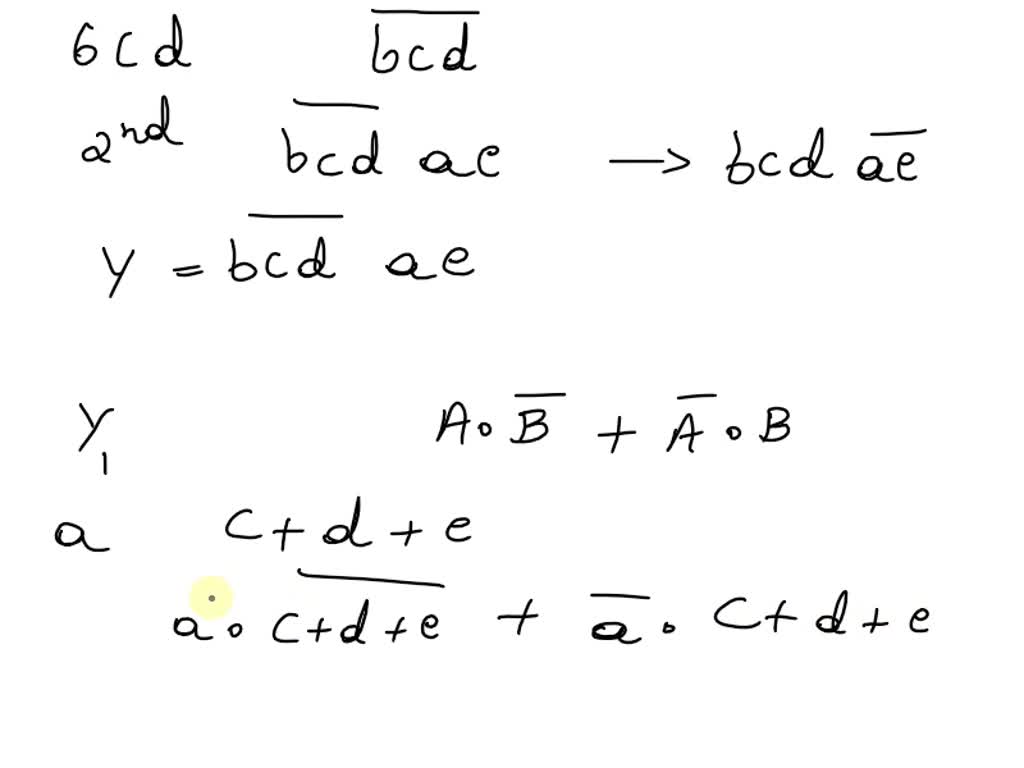 bcd  b̅c̅d̅
2nd  b̅c̅d̅ ae → bcd a̅e̅
y = b̅c̅d̅ ae
Y₁  A∘B̅ + A̅∘B
a  c+d+e
a∘ c̅+̅d̅+̅e̅ + a̅. c+d+e